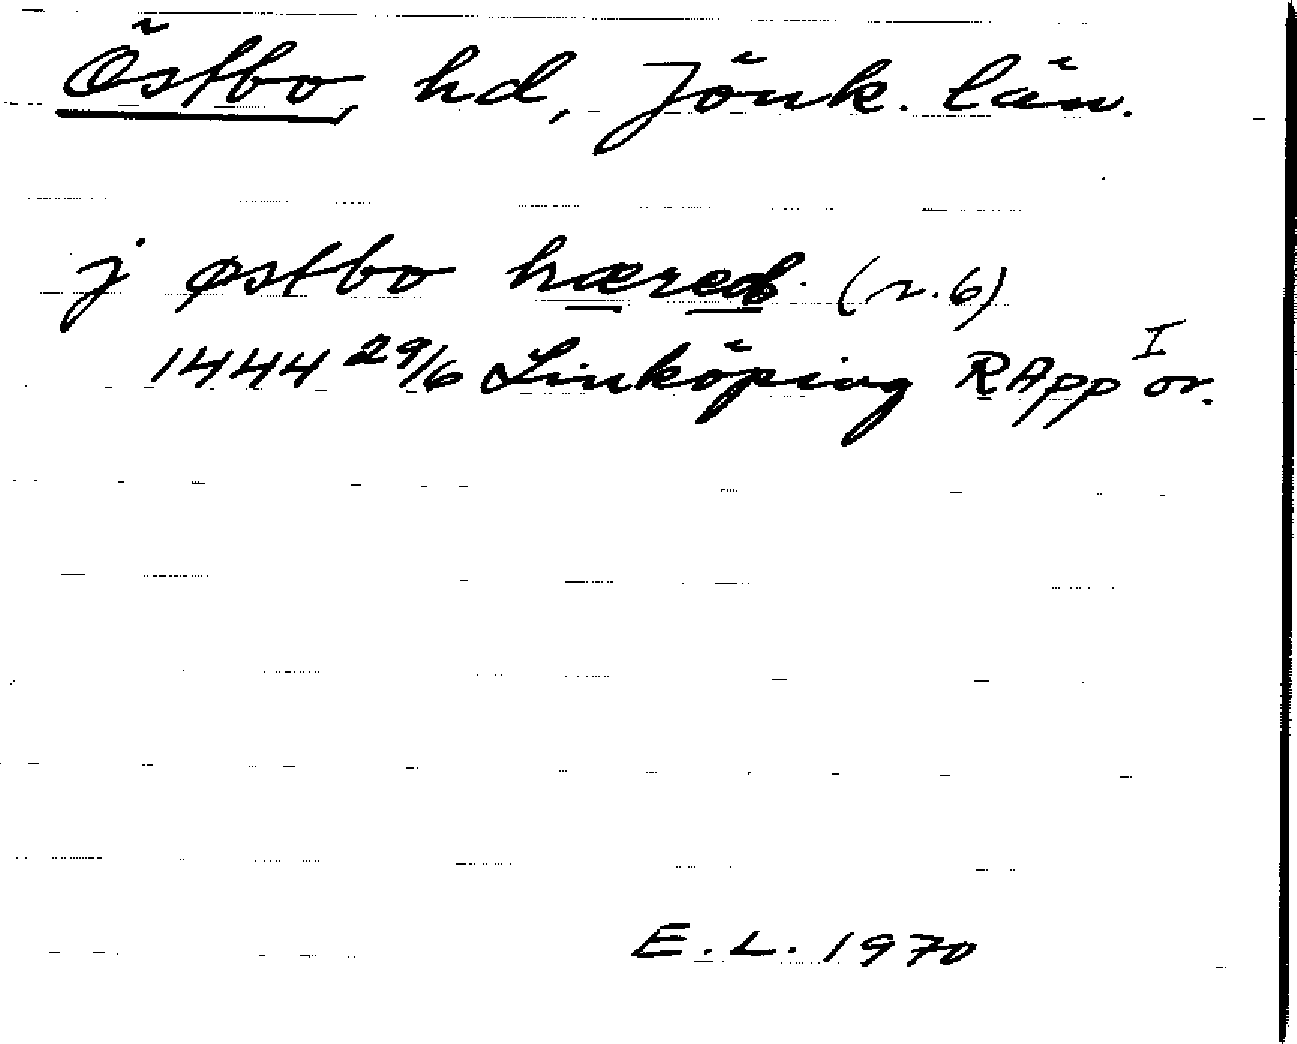 Östbo, hd, Jönk. län.
j østbo hæred. (r. 6)
1444 29/6 Linköping RApp I or.
E. L. 1970